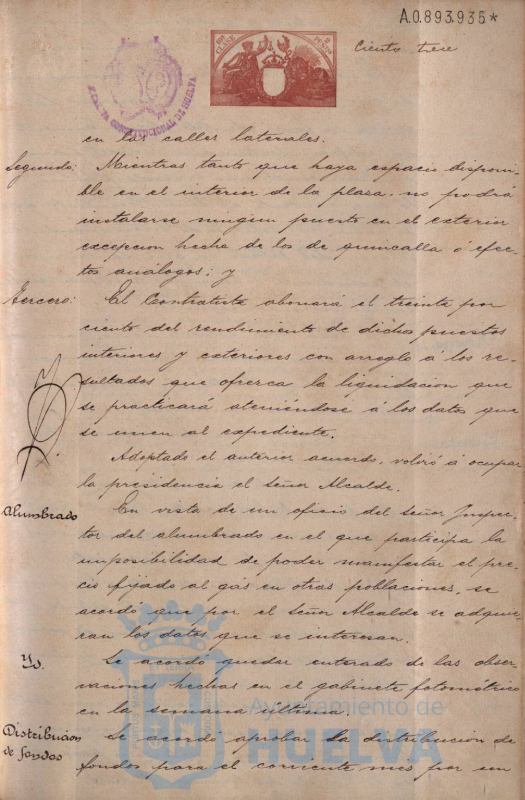 A.0.893.935*
Ciento trece
9ª CLASE
2 PESETAS
CONSTITUCIONAL DE HUELVA
en las calles laterales.
Segundo: Mientras tanto que haya espacio disponi-
ble en el interior de la plaza, no podrá
instalarse ningun puesto en el exterior
excepcion hecha de los de quincalla ó efec-
tos análogos; y
Tercero: El Contratista abonará el treinta por
ciento del rendimiento de dichos puestos
interiores y exteriores con arreglo á los re-
sultados que ofrezca la liquidacion que
se practicará ateniéndose á los datos que
se unen al expediente.
Adoptado el anterior acuerdo, volvió á ocupar
la presidencia el señor Alcalde.
Alumbrado En vista de un oficio del señor Inspec-
tor del alumbrado en el que participa la
imposibilidad de poder manifestar el pre-
cio fijado al gás en otras poblaciones, se
acordó que por el Señor Alcalde se adquie-
ran los datos que se interesan.
Yd. Se acordó quedar enterado de las obser-
vaciones hechas en el gabinete fotométrico
en la semana última.
Distribucion de fondos Se acordó aprobar la distribucion de
fondos para el corriente mes por un
Ayuntamiento de
HUELVA